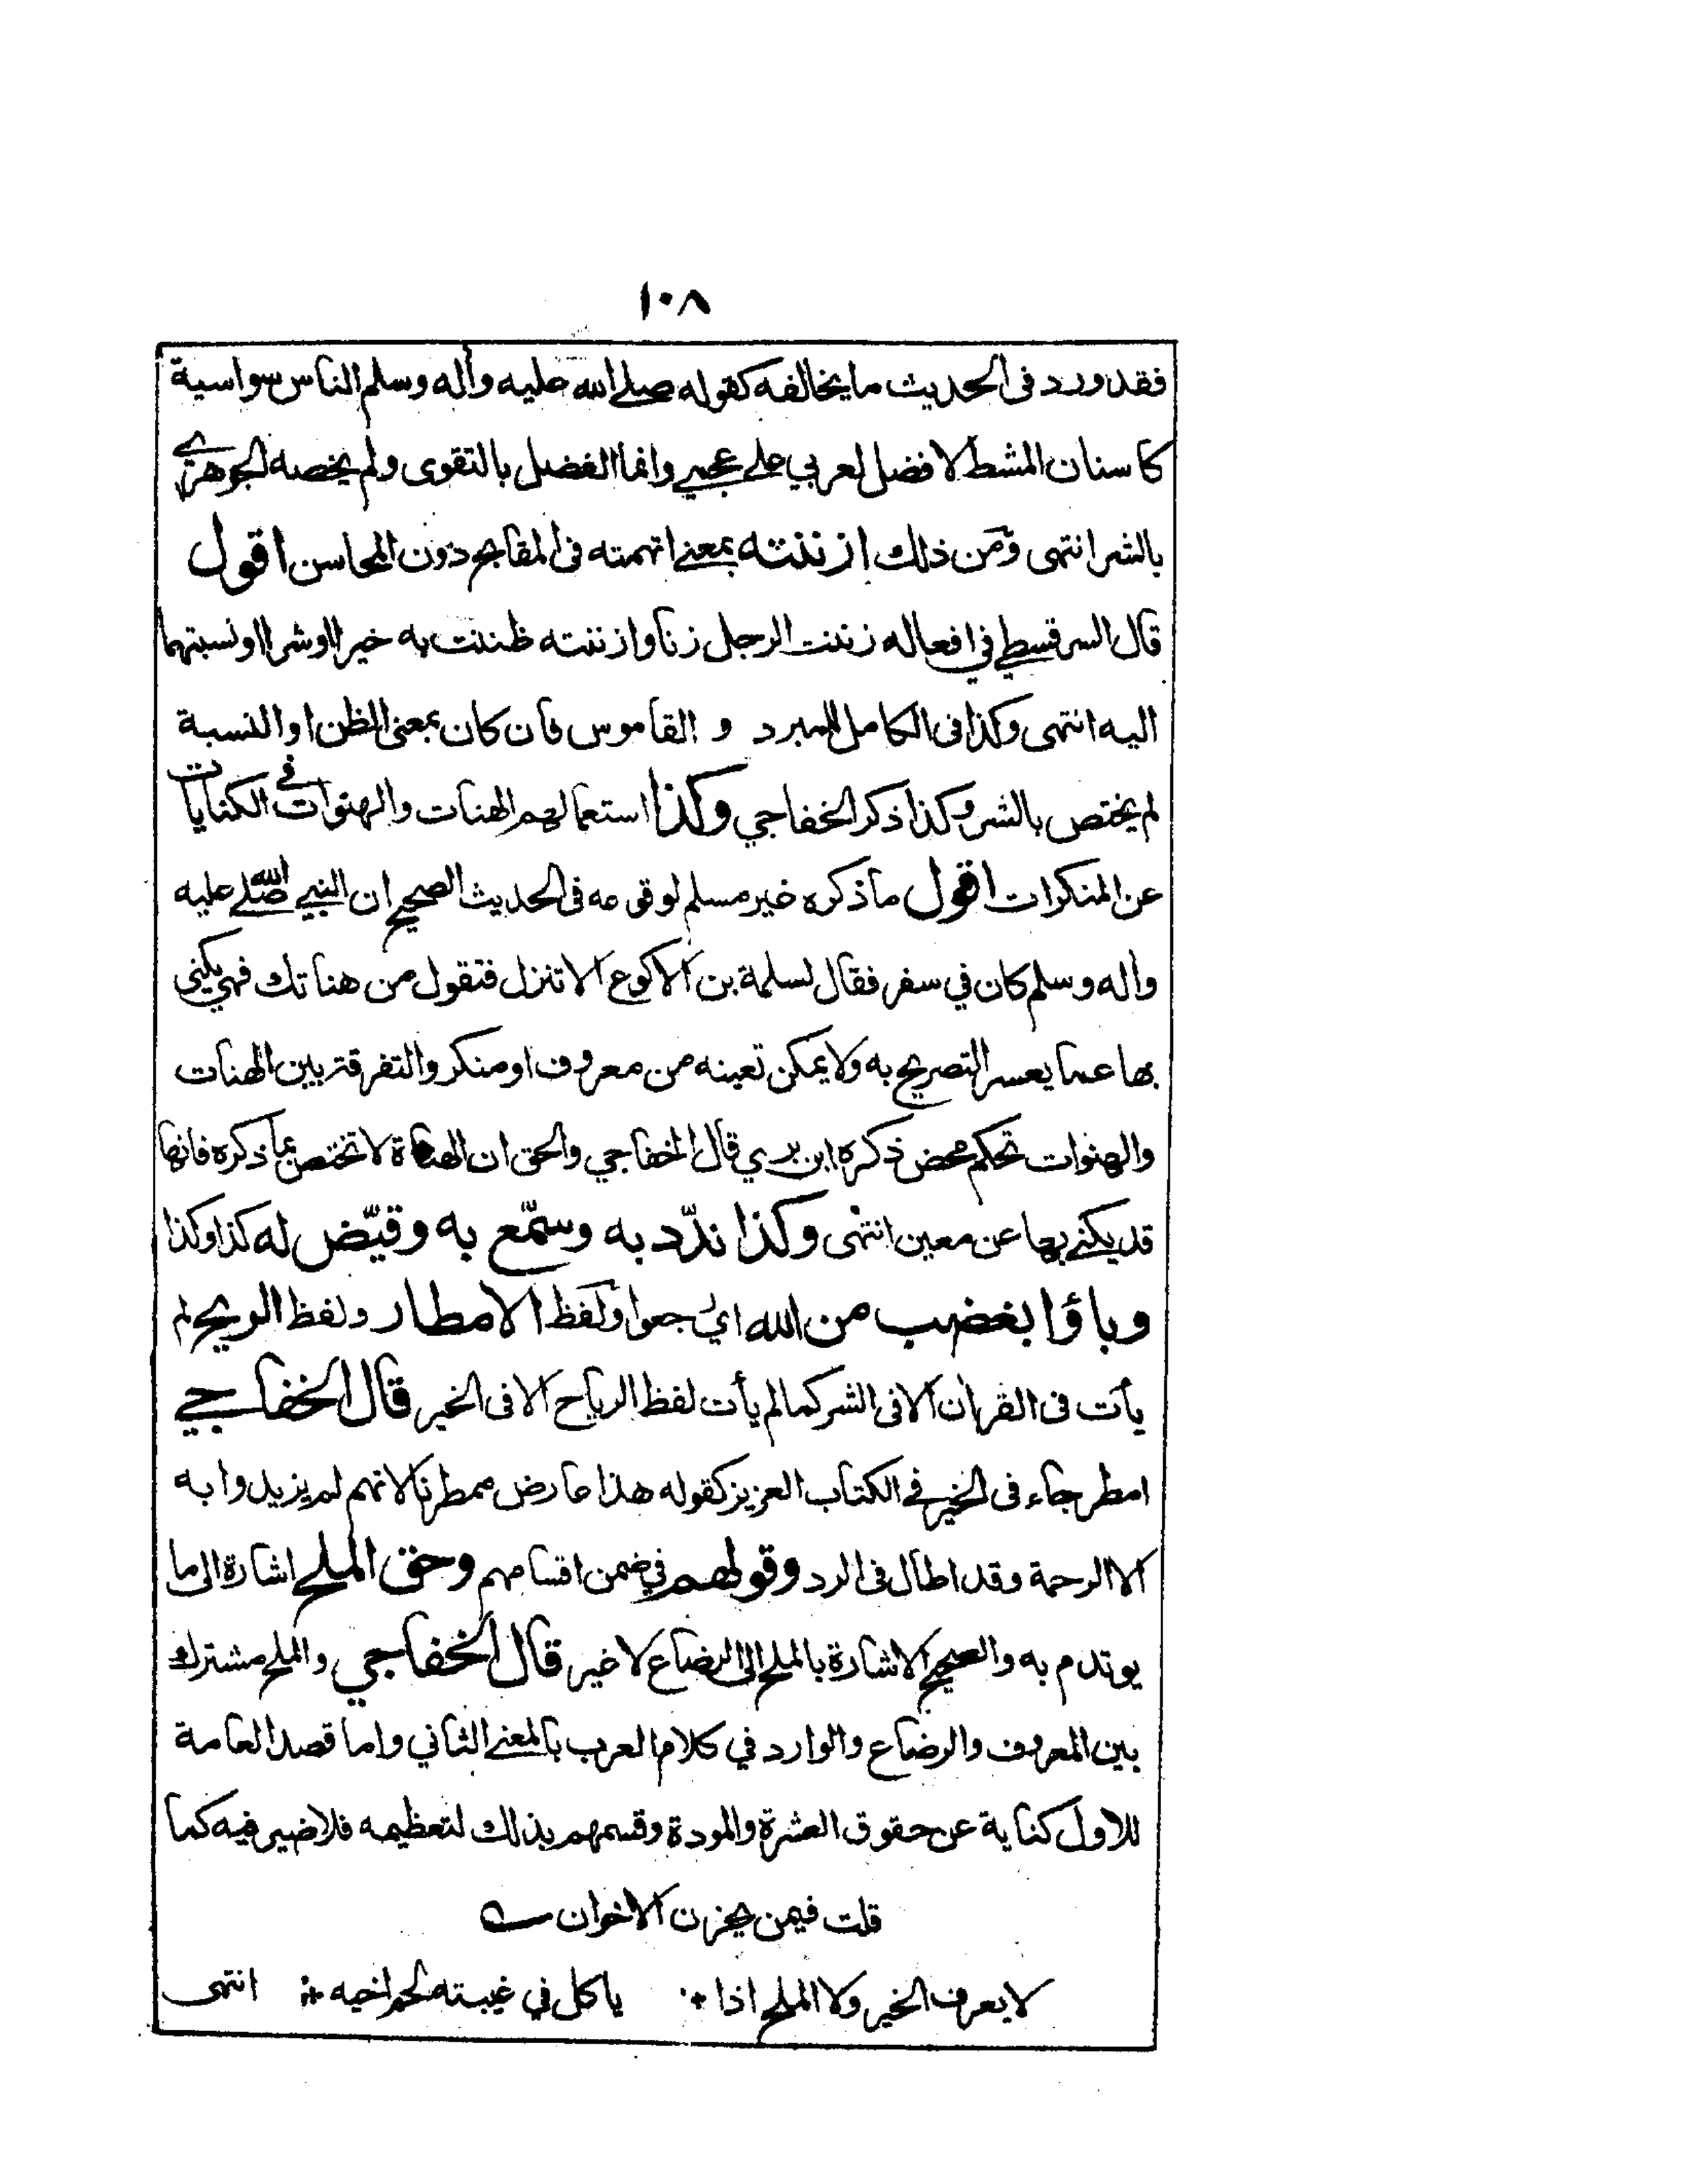 ١٠٨
فقد ورد فى الحديث ما يخالفه كقوله صلے الله عليه وأله وسلم الناس سواسية
كاسنان المشط لا فضل لعربي علے عجمي وانما الفضل بالتقوى ولم يخصه الجوهرے
بالشر انتهى ومن ذلك ازننته بمعنے اتهمته فى المقابح دون المحاسن اقول
قال السرقسطي في افعاله زننت الرجل زنا وازننته ظننت به خيرا او شرا او نسبتهما
اليه انتهى وكذا فى الكامل للمبرد و القاموس فان كان بمعنى الظن او النسبة
لم يختص بالشر وكذا ذكر الخفاجي وكذا استعمالهم الهنات والهنوات فے الكنايات
عن المنكرات اقول ما ذكره غير مسلم لوقوعه فى الحديث الصحيح ان النبي صلے الله عليه
وأله وسلم كان في سفر فقال لسلمة بن الاكوع الا تنزل فتقول من هناتك فهي يكنى
بها عما يعسر التصريح به ولا يمكن تعينه من معروف او منكر والتفرقة بين الهنات
والهنوات تحكم محض ذكره ابن بري قال الخفاجي والحق ان الهناة لا تختص بما ذكره فانها
قد يكنے بها عن معين انتهى وكذا ندّد به وسمّع به وقيّض له كذا وكذا
وباؤا بغضب من الله اي رجعوا ولفظ الامطار ولفظ الريح لم
يأت فى القرأن الا فى الشر كما لم يأت لفظ الرياح الا فى الخير قال الخفاجے
امطر جاء فى الخير فے الكتاب العزيز كقوله هذا عارض ممطرنا لانهم لم يزيدوا به
الا الرحمة وقد اطال فى الرد وقولهم في ضمن اقسامهم وحق الملح اشارة الى ما
يوتدم به والصحيح الاشارة بالملح الى الرضاع لا غير قال الخفاجي والملح مشترك
بين المعروف والرضاع والوارد في كلام العرب بالمعنے الثاني واما قصد العامة
للاول كناية عن حقوق العشرة والمودة وقسمهم بذلك لتعظيمه فلا ضير فيه كما
قلت فيمن يحزن الاخوان
لا يعرف الخير ولا الملح اذا * ياكل في غيبته لحم اخيه * انتهى